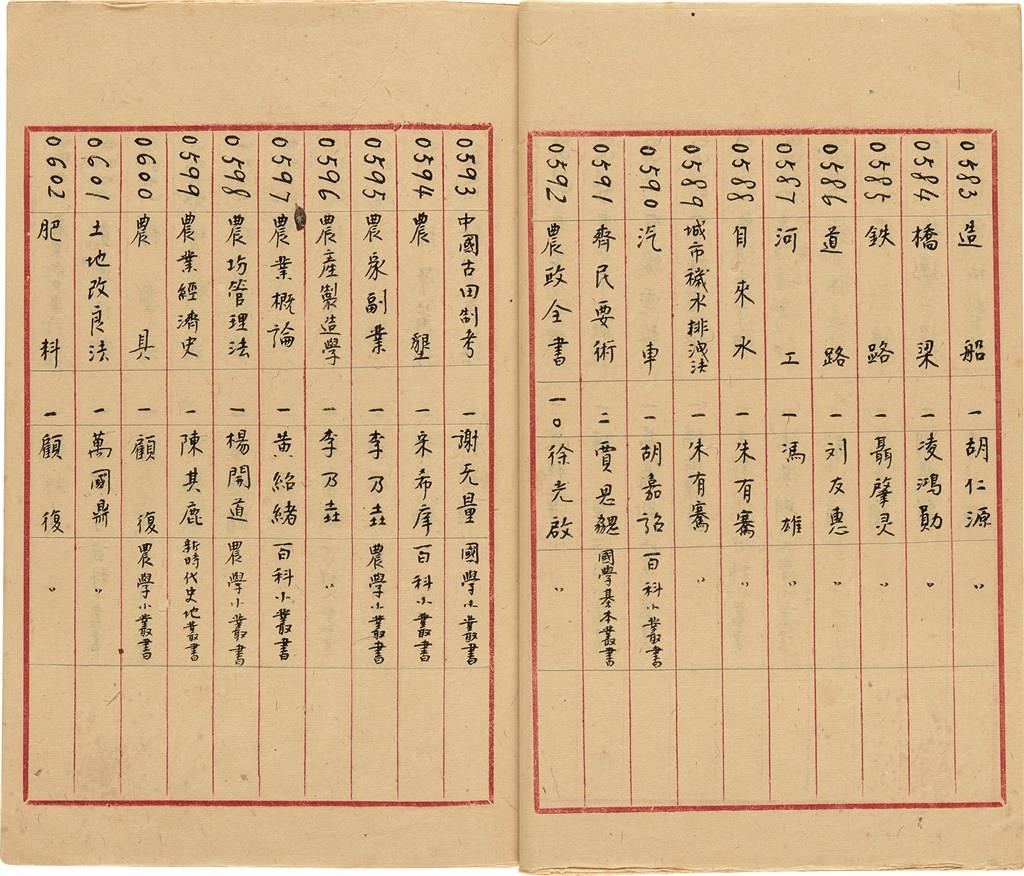 0583 造船 一 胡仁源 〃
0584 橋梁 一 凌鴻勛 〃
0585 鉄路 一 聶肇灵 〃
0586 道路 一 刘友惠 〃
0587 河工 一 馮雄 〃
0588 自來水 一 朱有騫 〃
0589 城市穢水排洩法 一 朱有騫 〃
0590 汽車 一 胡嘉詔 百科小叢書
0591 齊民要術 二 賈思勰 國學基本叢書
0592 農政全書 一〇 徐光啟 〃
0593 中國古田制考 一 謝无量 國學小叢書
0594 農墾 一 宋希庠 百科小叢書
0595 農家副業 一 李乃垚 農學小叢書
0596 農產製造學 一 李乃垚 〃
0597 農業概論 一 黄紹緒 百科小叢書
0598 農場管理法 一 楊開道 農學小叢書
0599 農業經濟史 一 陳其鹿 新時代史地叢書
0600 農具 一 顧復 農學小叢書
0601 土地改良法 一 萬國鼎 〃
0602 肥料 一 顧復 〃